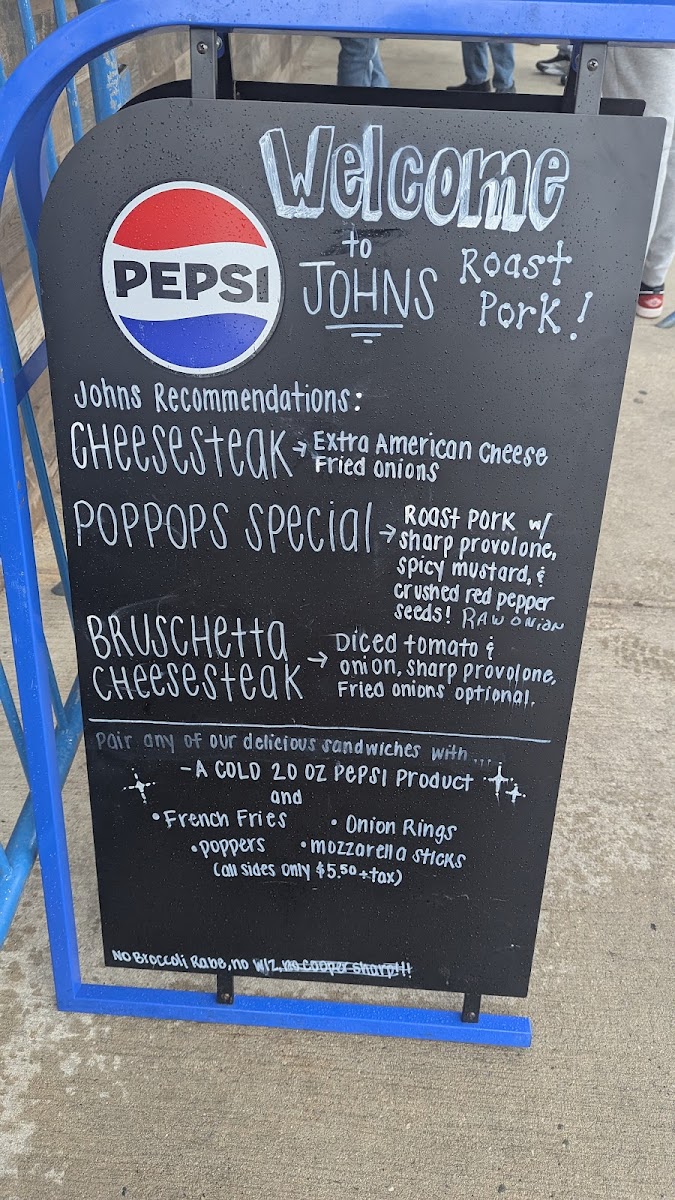 Welcome
to
JOHNS
Roast
Pork!
PEPSI
Johns Recommendations:
CHeesesteak → Extra American cheese
Fried onions
POPPOPS special → Roast Pork w/
sharp provolone,
spicy mustard, &
crushed red pepper
seeds! RAW ONION
BRUSCHetta
CHeesesteak → Diced tomato &
onion, sharp provolone,
Fried onions optional.
Pair any of our delicious sandwiches with...
-A COLD 20 OZ PePSI Product
and
•French Fries • Onion Rings
•poppers •mozzarella sticks
(all sides only $5.50 +tax)
NO Broccoli Rabe, no wiz, no cooper sharp!!!